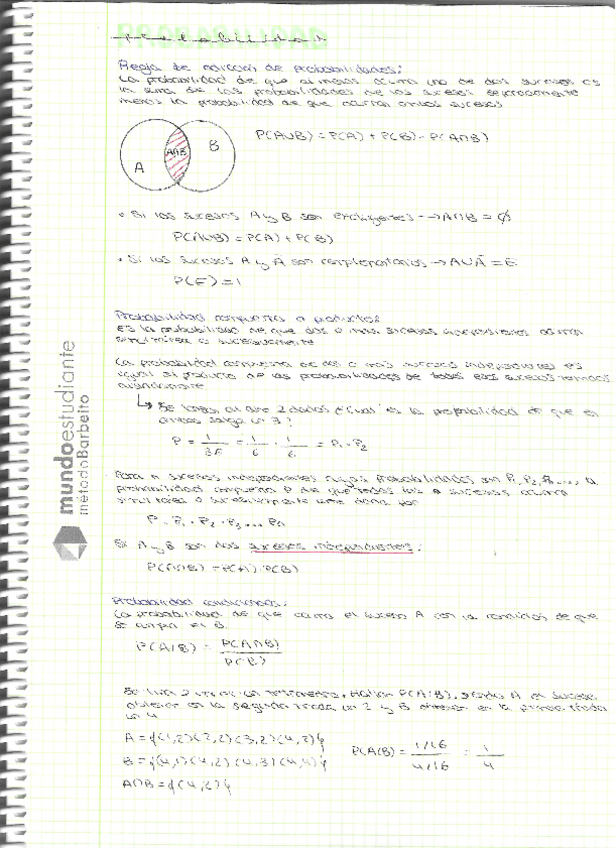 Probabilidad
Regla de adición de probabilidades:
La probabilidad de que al menos ocurra uno de dos sucesos es
la suma de las probabilidades de los sucesos separadamente
menos la probabilidad de que ocurran ambos sucesos
A
A∩B
B
P(A∪B) = P(A) + P(B) - P(A∩B)
• Si los sucesos A y B son excluyentes → A∩B = Ø
P(A∪B) = P(A) + P(B)
• Si los sucesos A y Ā son complementarios → A∪Ā = E
P(E) = 1
Probabilidad compuesta o productos:
Es la probabilidad de que dos o más sucesos independientes ocurran
simultánea o sucesivamente
La probabilidad compuesta de dos o más sucesos independientes es
igual al producto de las probabilidades de todos esos sucesos tomados
aisladamente
↳ Se lanzan al aire 2 dados ¿Cuál es la probabilidad de que en
ambos salga un 3?
P = 1/36 = 1/6 · 1/6 = P₁ · P₂
Para n sucesos independientes cuyas probabilidades son P₁, P₂, P₃..., la
probabilidad compuesta P de que todos los n sucesos ocurran
simultánea o sucesivamente dada por
P = P₁ · P₂ · P₃ ... Pn
Si A y B son dos sucesos independientes:
P(A∩B) = P(A) · P(B)
Probabilidad condicionada:
La probabilidad de que ocurra el suceso A con la condición de que
se cumpla el B.
P(A/B) = P(A∩B) / P(B)
Se tira 2 un tetraedro, Hallar P(A/B), siendo A el suceso
obtener en la segunda tirada un 2 y B obtener en la primera tirada
un 4
A = {(1,2) (2,2) (3,2) (4,2)}
B = {(4,1) (4,2) (4,3) (4,4)}
A∩B = {(4,2)}
P(A/B) = 1/16 / 4/16 = 1/4
mundoestudiante
métodoBarbeito